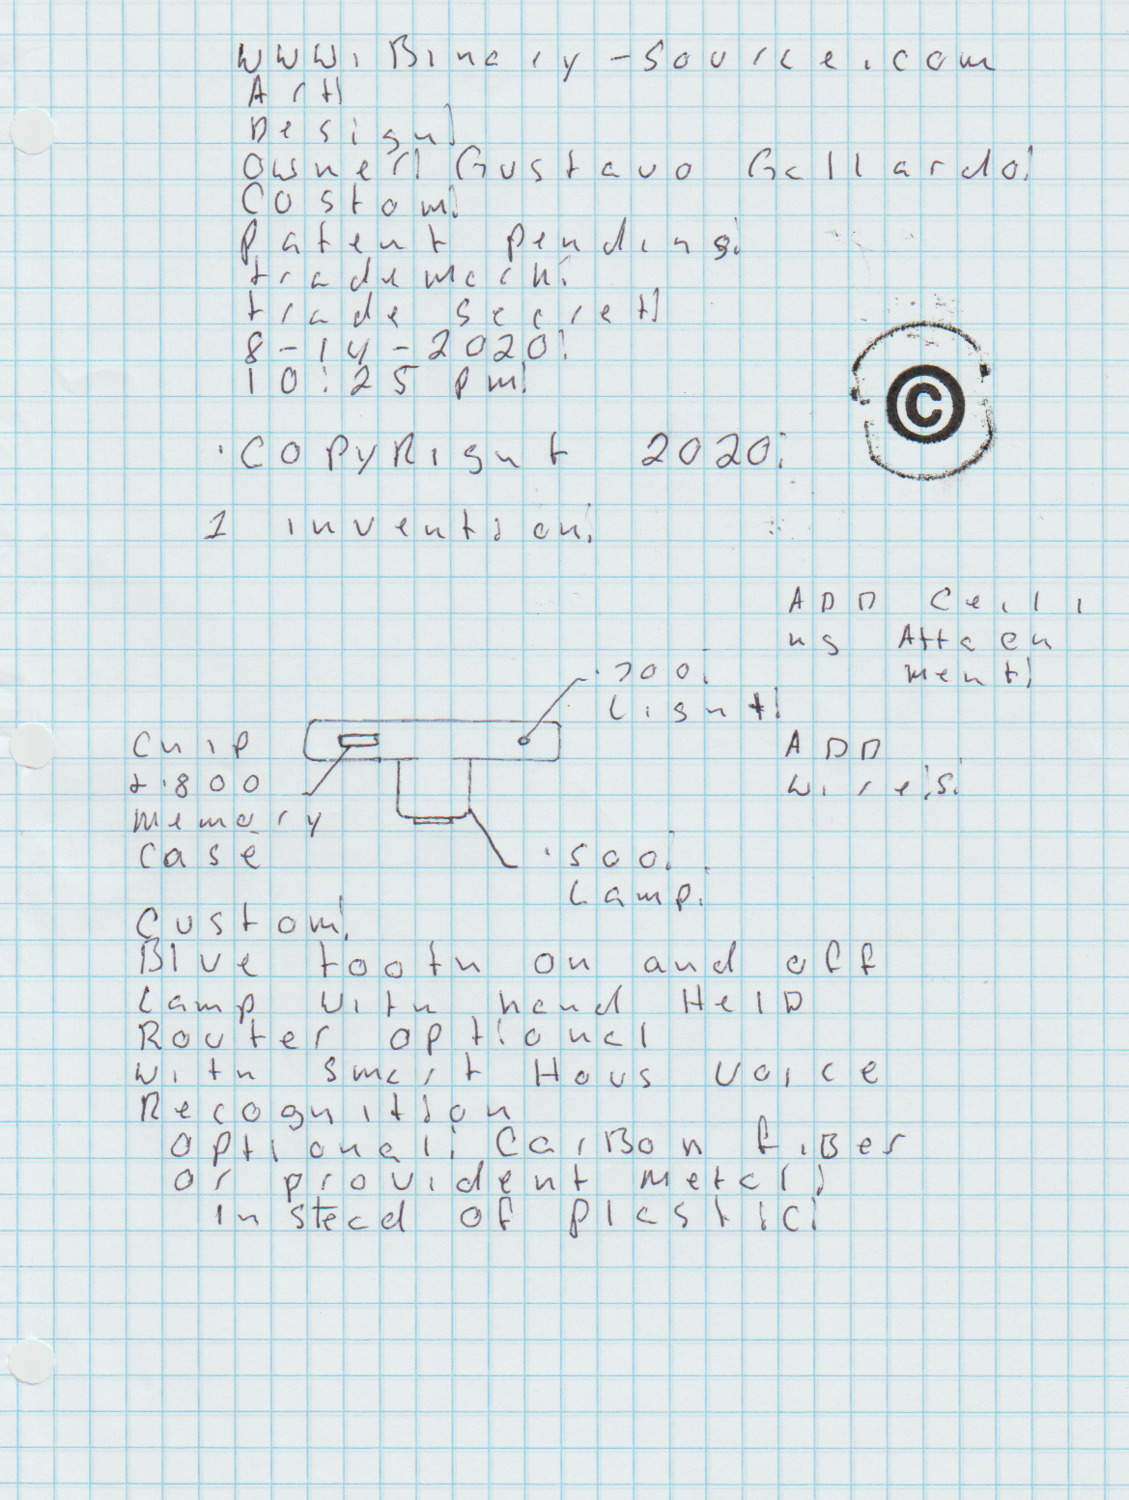 www.Binary-source.com
Art!
Design!
Owner! Gustavo Gallardo!
Custom!
Patent pending!
trademark!
trade secret!
8-14-2020!
10:25 pm!
©
.COPYRight 2020!
1 invention!
ADD Ceili
ng Attach
ment!
.700!
Light!
Chip
+.800
memory
case
ADD
wire's!
.500!
Lamp!
Custom!
Blue tooth on and off
Lamp with hand HelD
Router optional
with smart Hous voice
Recognition
optional! CarBon fiBer
or provident metal!
in stead of plastic!